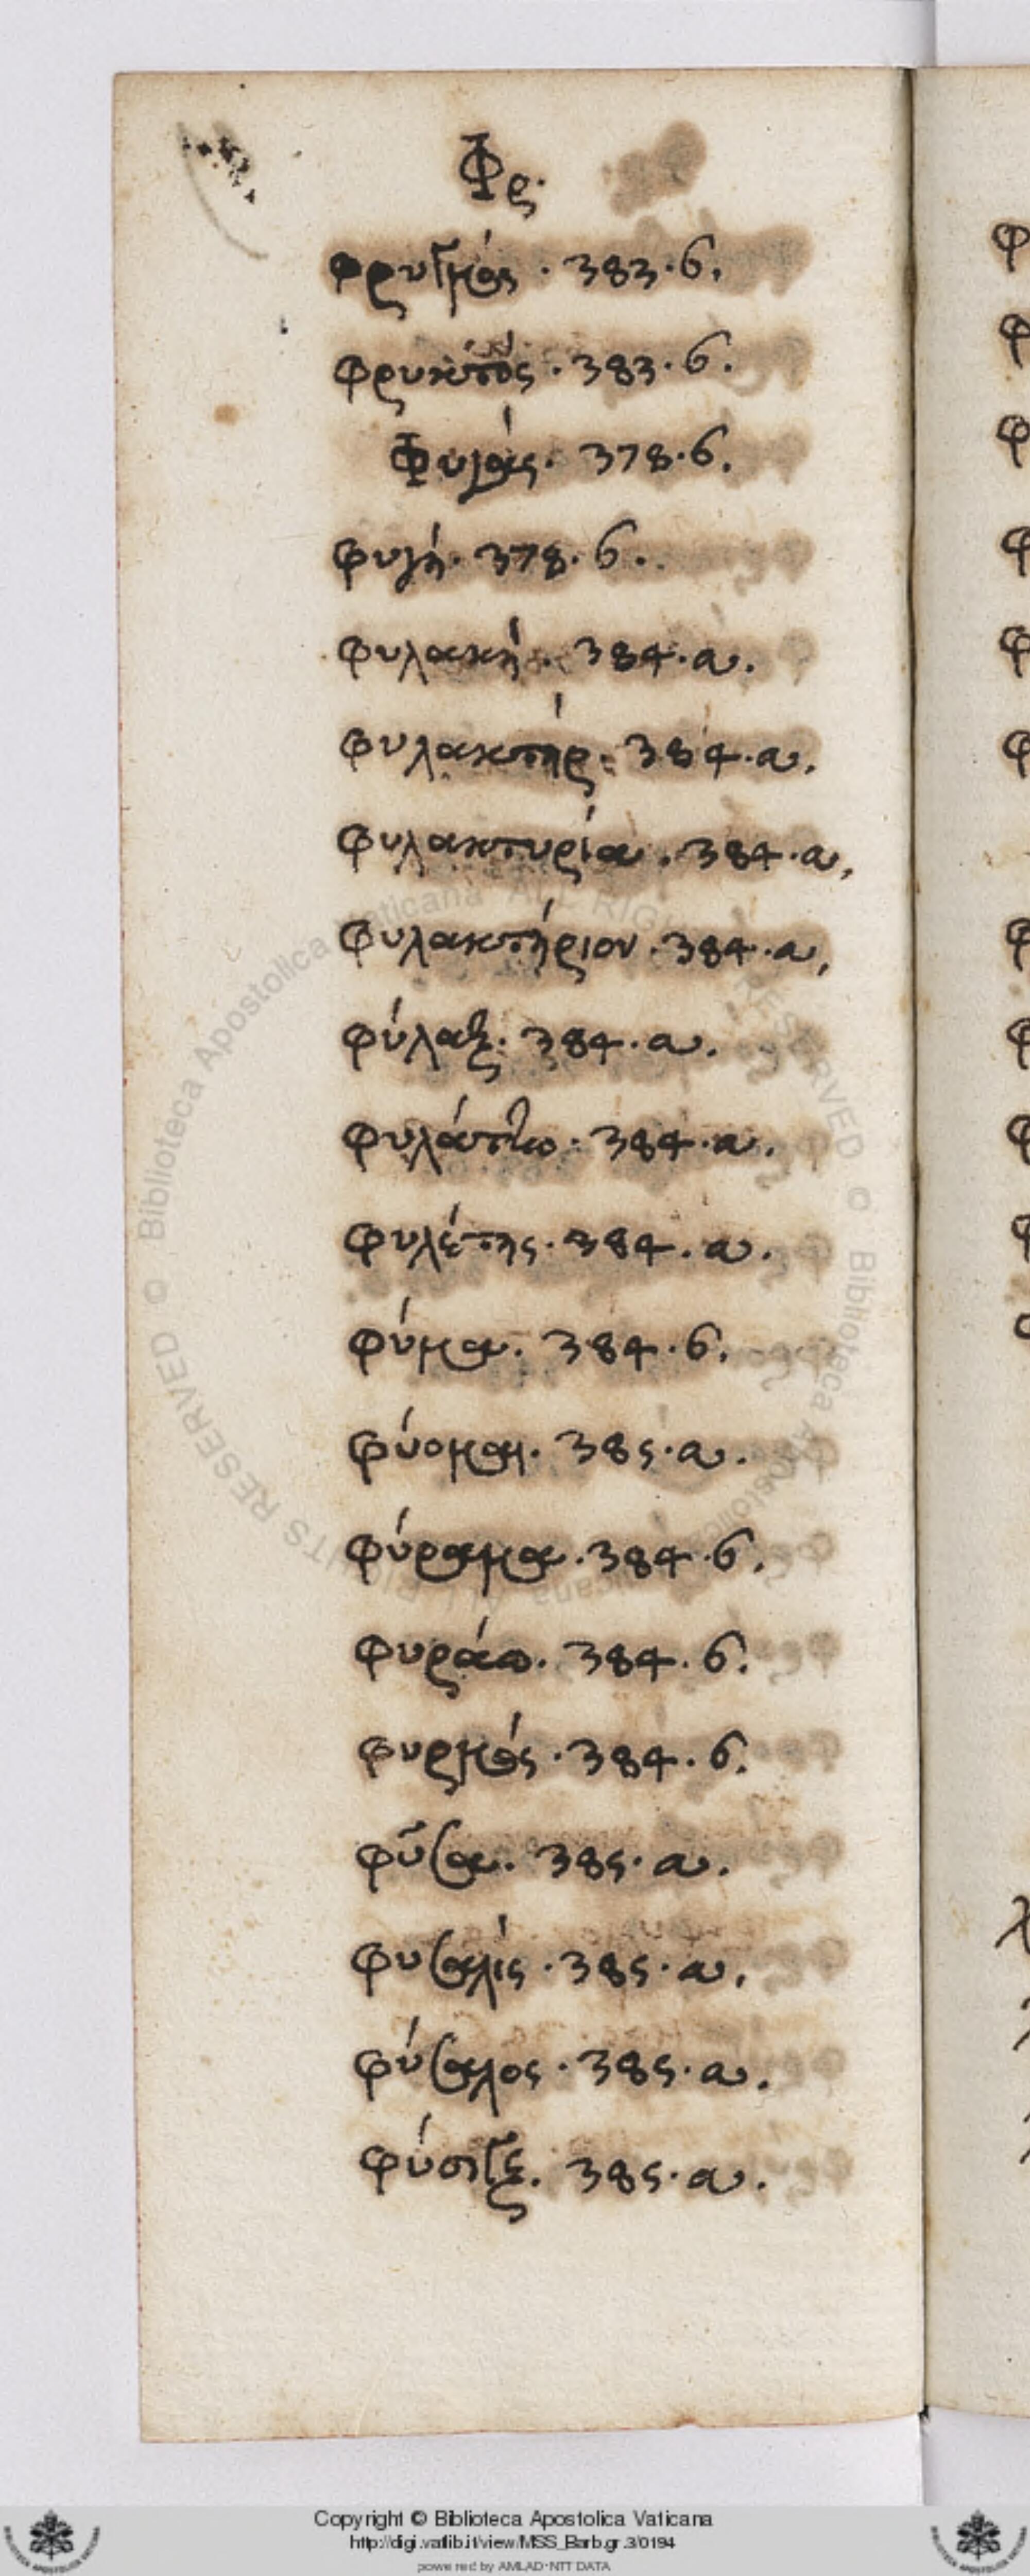 Φρ.
φρυγμός . 383. 6.
φρυκτός . 383. 6.
Φυγάς. 378. 6.
φυγή. 378. 6.
φυλακή. 384. α.
φυλακτήρ. 384. α.
φυλακτυρία. 384. α,
φυλακτήριον. 384. α,
φύλαξ. 384. α.
φυλάττω. 384. α.
φυλέτης. 384. α.
φύμα. 384. 6.
φύομαι. 385. α.
φύραμα. 384. 6.
φυράω. 384. 6.
φυρμός. 384. 6.
φῦσα. 385. α.
φυσαλίς . 385. α,
φύσαλος . 385. α.
φύσιγξ. 385. α.
Copyright © Biblioteca Apostolica Vaticana
http://digi.vatlib.it/view/MSS_Barb.gr.3/0194
powered by AMLAD-NTT DATA